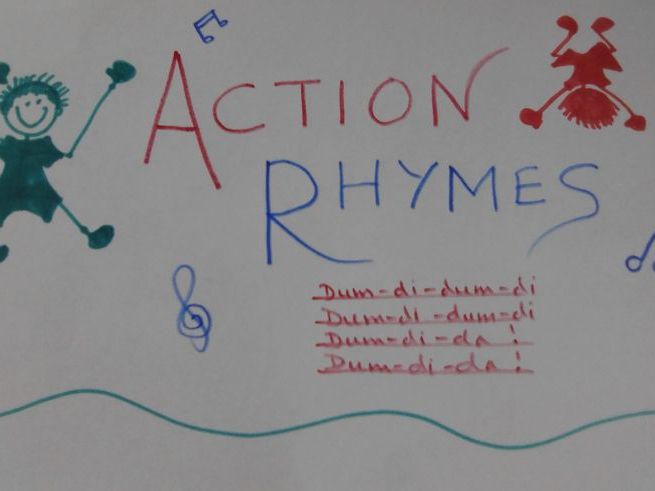 ACTION
RHYMES
Dum-di-dum-di
Dum-di-dum-di
Dum-di-da!
Dum-di-da!